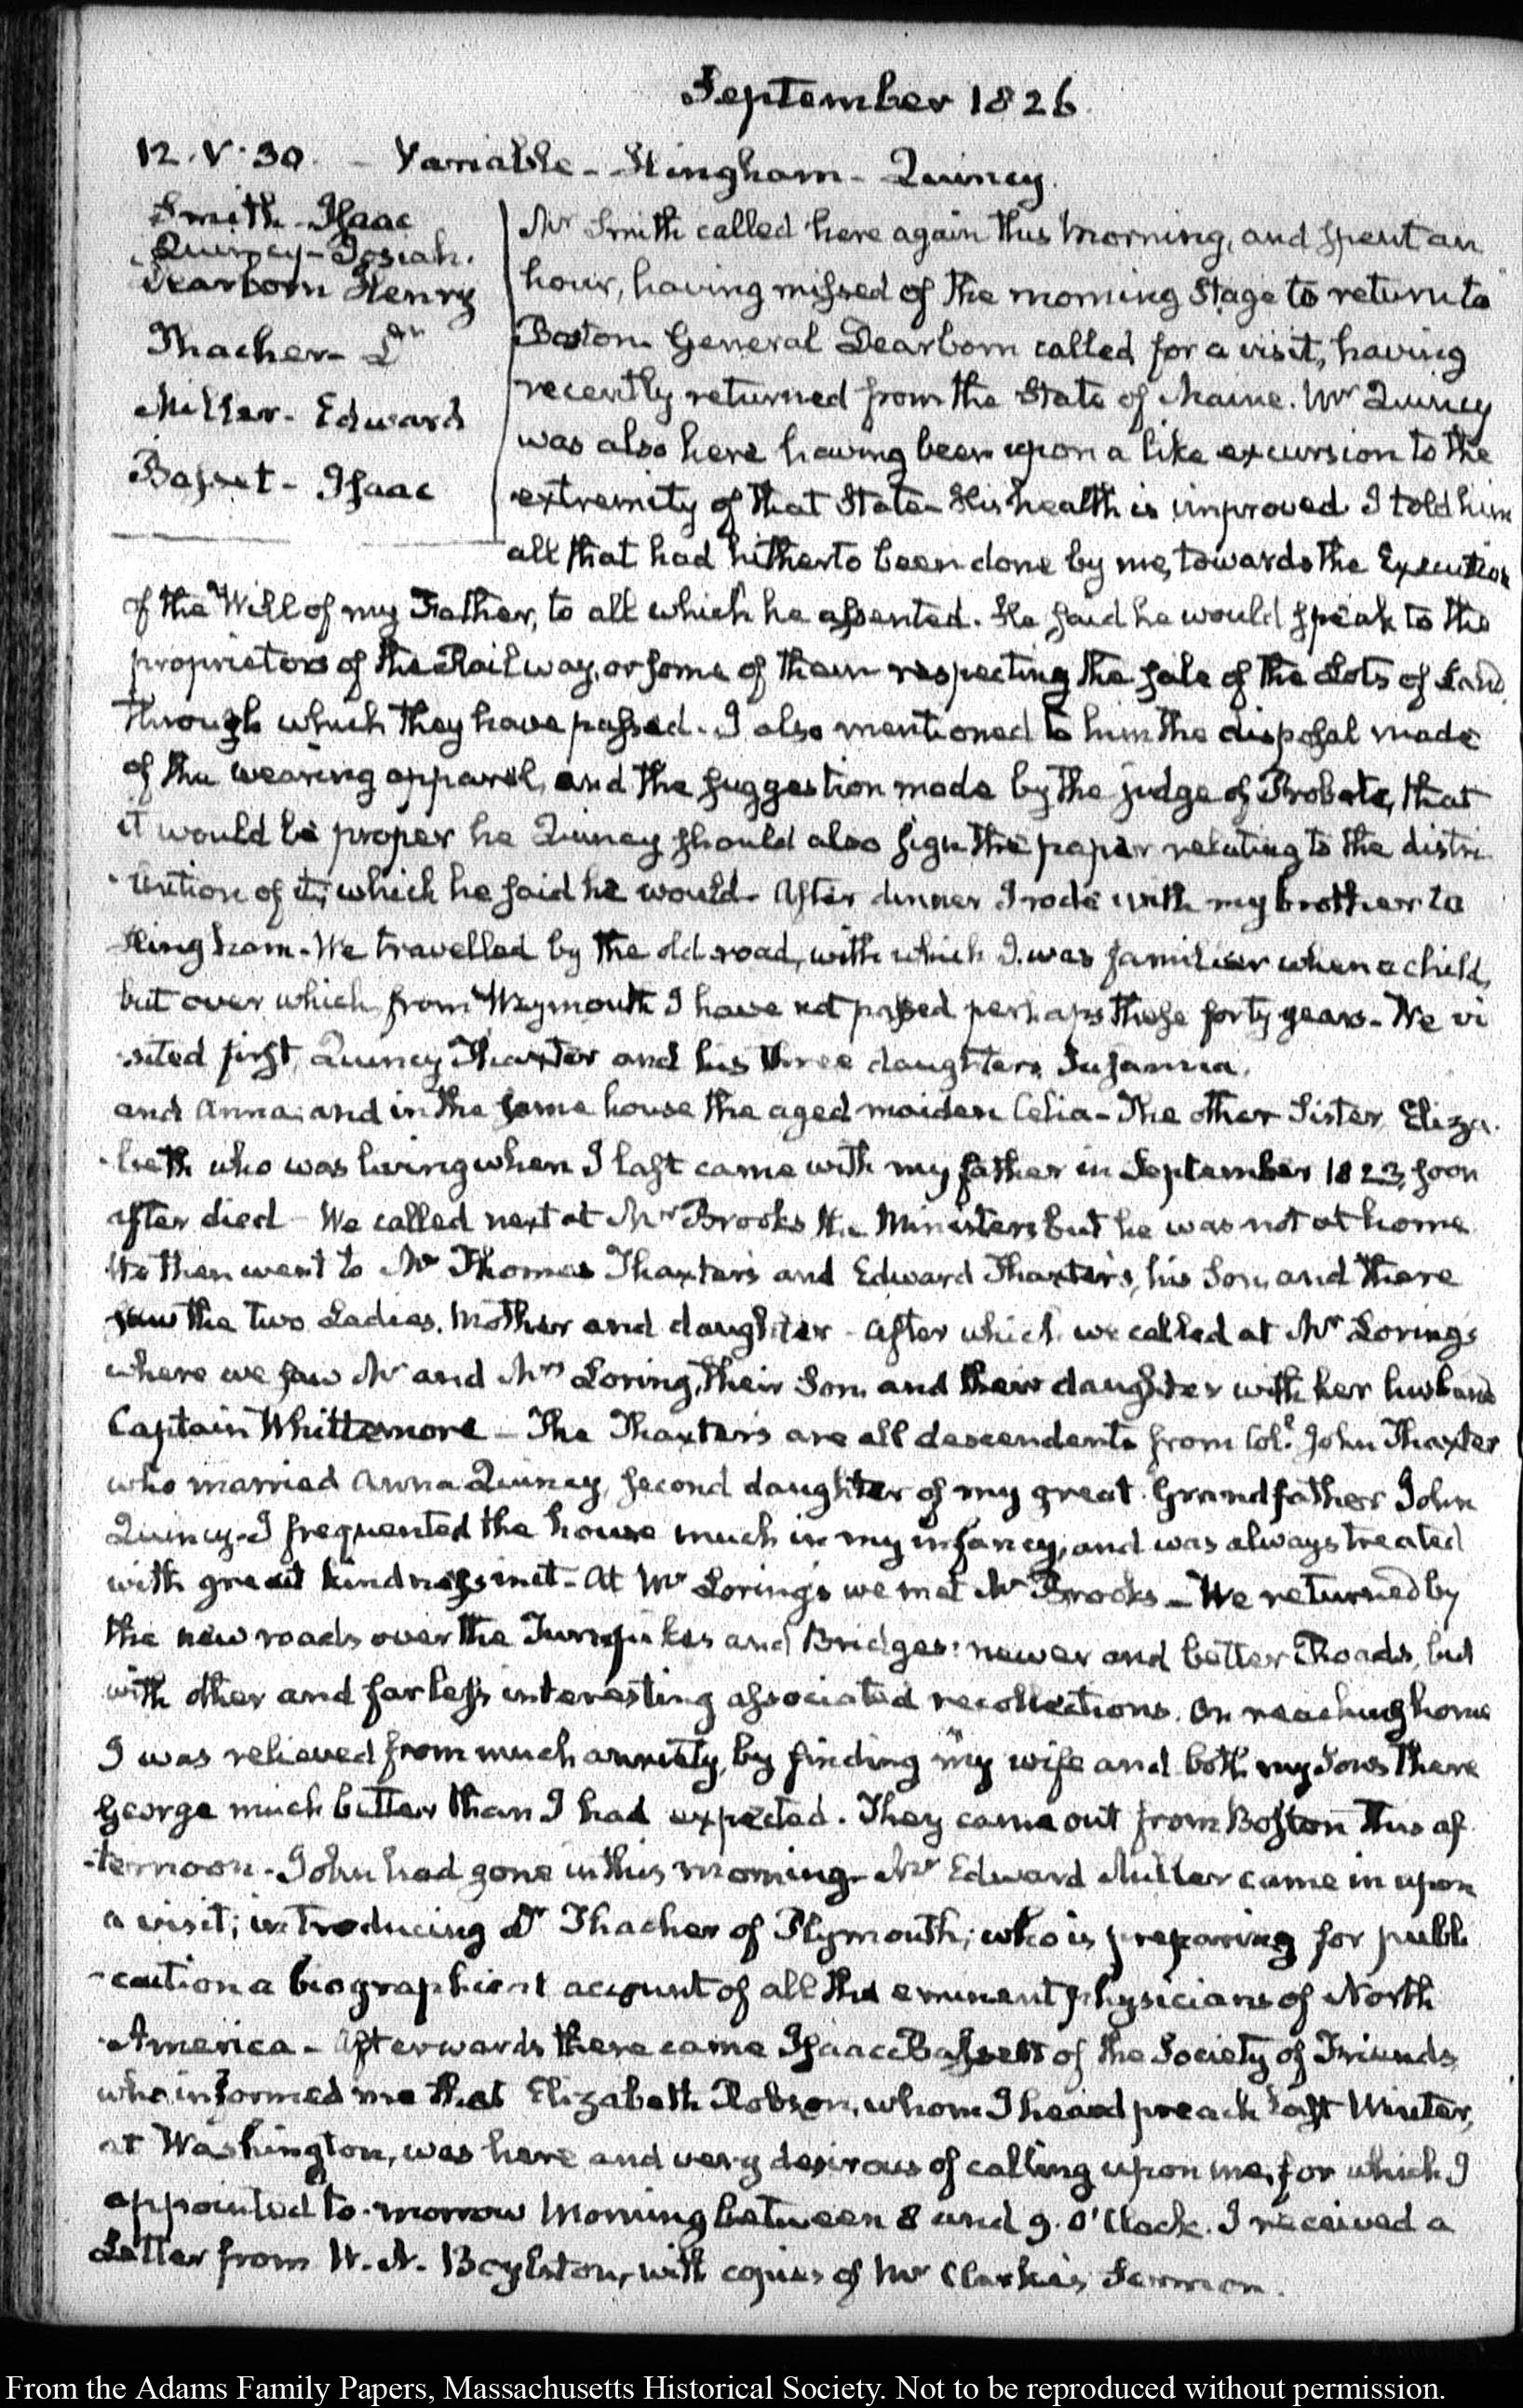 September 1826.
12. V. 30. – Variable – Hingham – Quincy.
Smith – Isaac
Quincy – Josiah.
Dearborn Henry
Thacher – Dr
Miller – Edward
Basset – Isaac
Mr Smith called here again this Morning, and spent an
hour, having missed of the morning Stage to return to
Boston. General Dearborn called for a visit, having
recently returned from the State of Maine. Mr Quincy
was also here having been upon a like excursion to the
extremity of that State – His health is improved. I told him
all that had hitherto been done by me, towards the Execution
of the Will of my Father, to all which he assented. He said he would speak to the
proprietors of the Railway, or some of them respecting the sale of the Lots of Land,
through which they have passed. I also mentioned to him the disposal made
of the wearing apparel, and the suggestion made by the judge of Probate, that
it would be proper he Quincy should also sign the paper relating to the distri-
-bution of it; which he said he would. After dinner I rode with my brother to
Hingham – We travelled by the old road, with which I was familiar when a child,
but over which from Weymouth I have not passed perhaps these forty years – We vi
-sited first Quincy Thaxter and his three daughters Susanna,
and Anna; and in the same house the aged maiden Celia – The other Sister Eliza-
-beth who was living when I last came with my father in September 1823, soon
after died – We called next at Mr Brooks the Ministers but he was not at home
We then went to Mr Thomas Thaxter's and Edward Thaxter's, his Son, and there
saw the two Ladies, Mother and daughter – After which we called at Mr Loring's
where we saw Mr and Mrs Loring, their Son, and their daughter with her husband
Captain Whittemore – The Thaxters are all descendents from Coll. John Thaxter
who married Anna Quincy, second daughter of my great Grandfather John
Quincy – I frequented the house much in my infancy, and was always treated
with great kindness in it – At Mr Loring's we met Mr Brooks – We returned by
the new roads over the Turnpikes and Bridges: newer and better Roads, but
with other and far less interesting associated recollections. On reaching home
I was relieved from much anxiety, by finding my wife and both my Sons there
George much better than I had expected. They came out from Boston this af
-ternoon – John had gone in this morning – Mr Edward Miller came in upon
a visit; introducing Dr Thacher of Plymouth; who is preparing for publi
-cation a biographical account of all the eminent physicians of North
America – Afterwards there came Isaac Bassett of the Society of Friends
who informed me that Elizabeth Robson, whom I heard preach last Winter,
at Washington, was here and very desirous of calling upon me, for which I
appointed to-morrow Morning between 8 and 9. O'Clock. I received a
Letter from W. N. Boylston, with copies of Mr Clarke's Sermon.
From the Adams Family Papers, Massachusetts Historical Society. Not to be reproduced without permission.